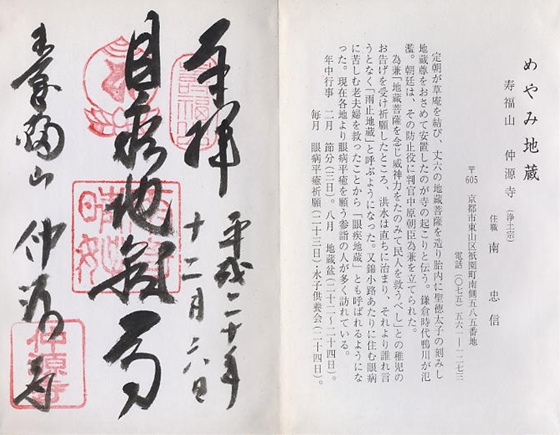 めやみ地蔵
寿福山 仲源寺 (浄土宗)
住職 南 忠信
〒605 京都市東山区祇園町南側五八五番地
電話(〇七五)五六一―一二七三
定朝が草庵を結び、丈六の地蔵菩薩を造り胎内に聖徳太子の刻みし
地蔵尊をおさめて安置したのが寺の起こりと伝う。鎌倉時代鴨川が氾
濫。朝廷は、その防止役に判官中原朝臣為兼を立てられた。
為兼「地蔵菩薩を念じ威神力をたのみて民人を救うべし」との稚児の
お告げを受け祈願したところ、洪水は直ちに治まり、それより誰れ言
うとなく「雨止地蔵」と呼ぶようになった。又錦小路あたりに住む眼病
に苦しむ老夫婦を救ったことから「眼疾地蔵」とも呼ばれるようにな
った。現在各地より眼病平癒を願う参詣の人が多く訪れている。
年中行事 二月 節分(三日)。八月 地蔵盆(二十二〜二十四日)。
毎月 眼病平癒祈願(二十三日)・水子供養会(二十四日)。
奉拝
平成二十年
十二月六日
目疾地蔵尊
寿福山 仲源寺
仲源寺